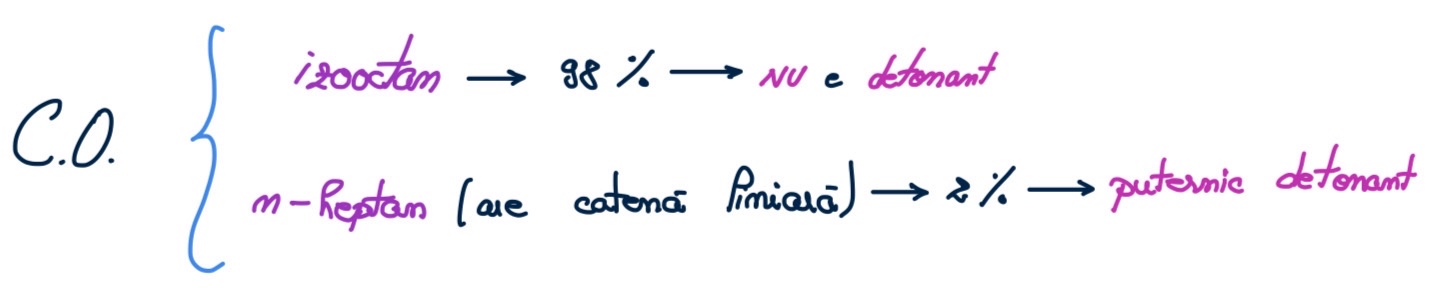 izooctan → 98 % → NU e detonant
C.O.
n-heptan (are catenă liniară) → 2 % → puternic detonant